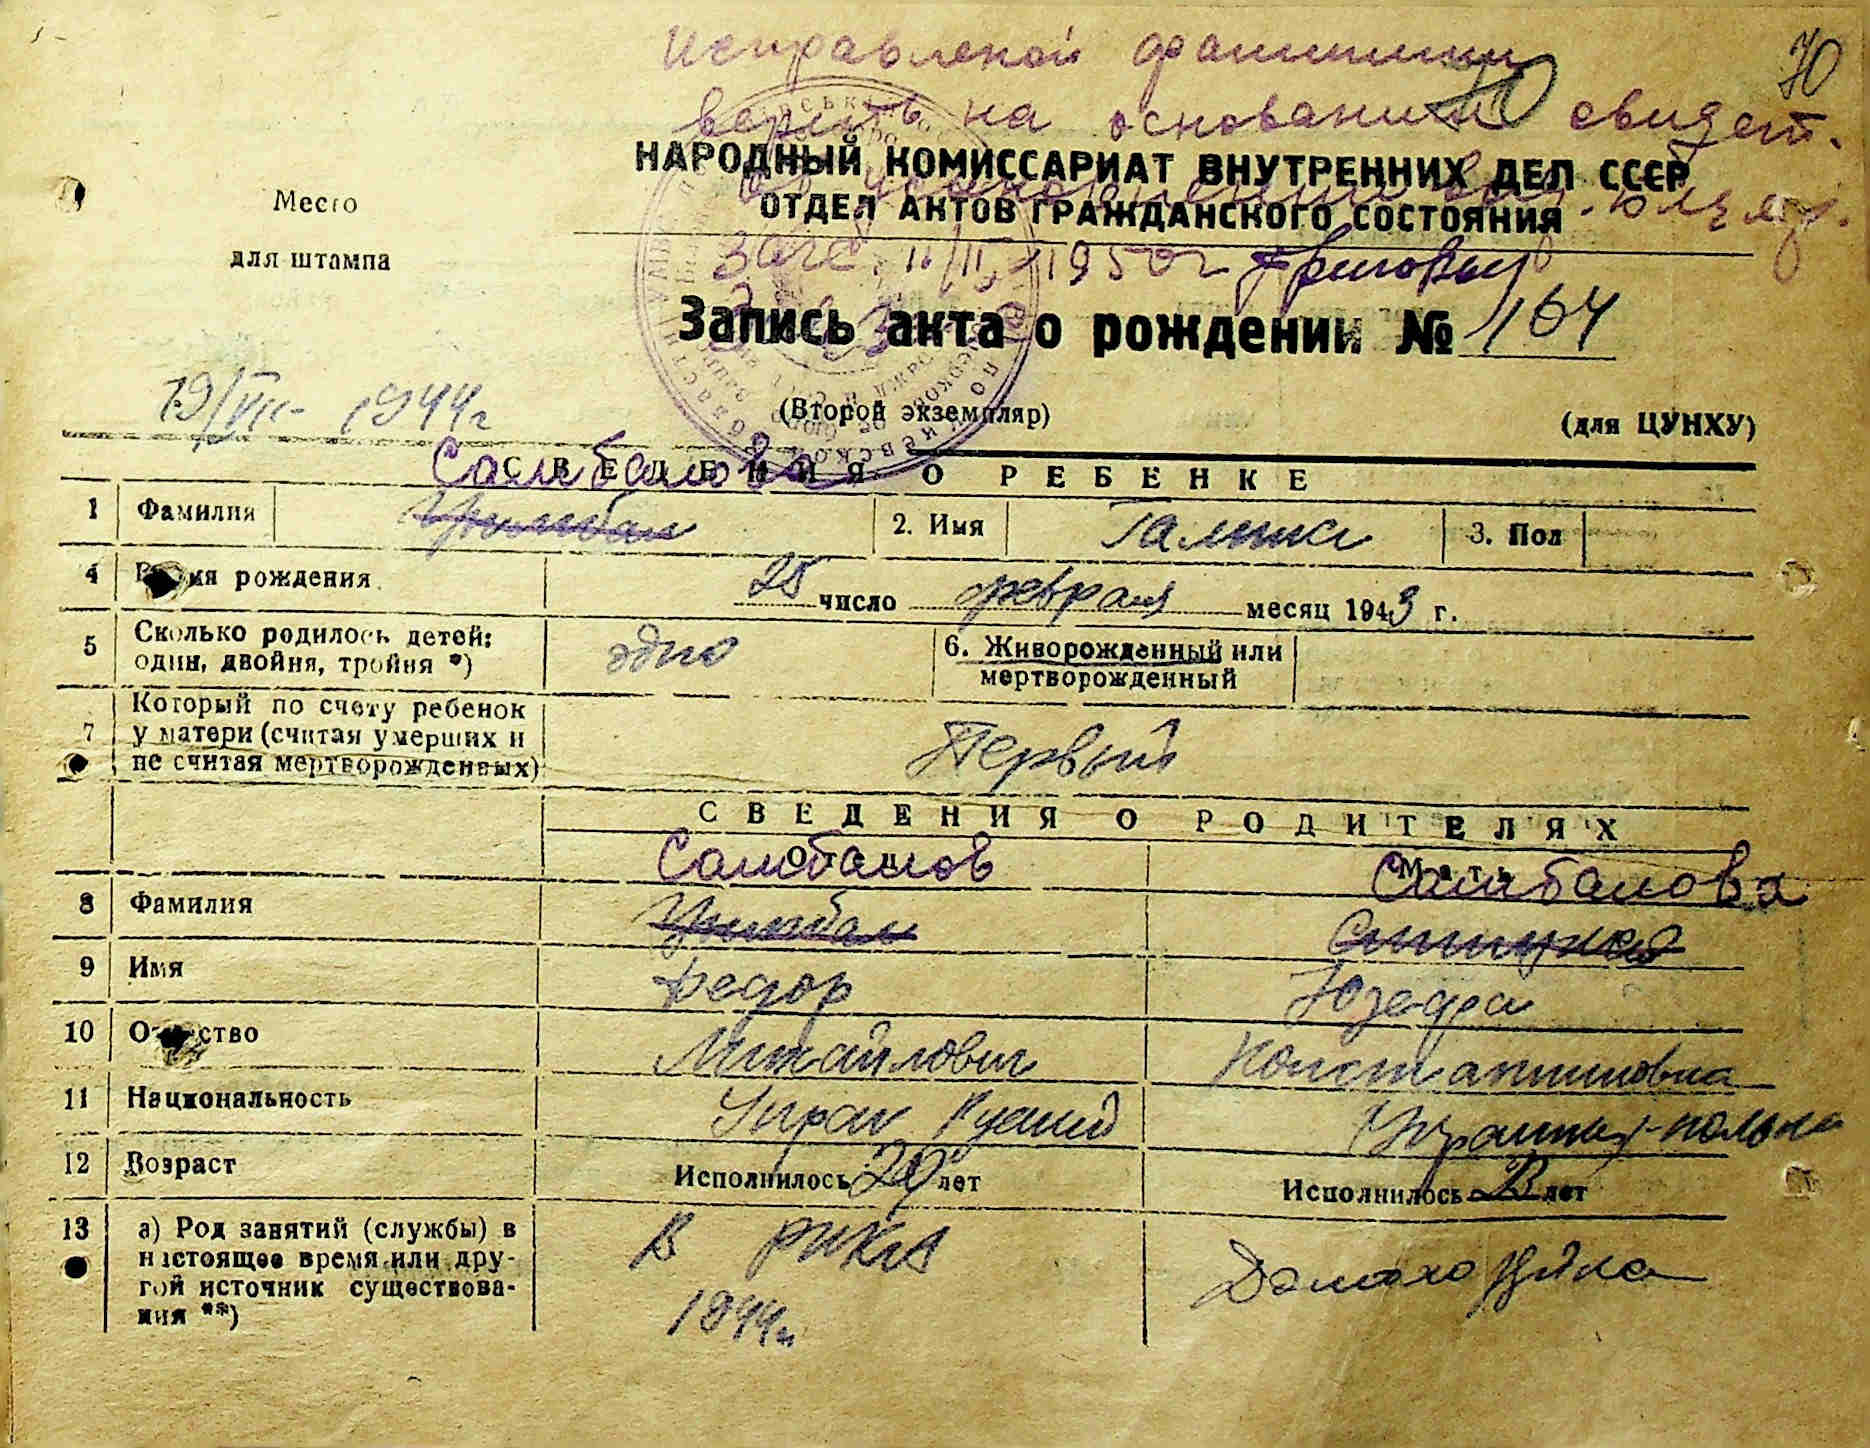 Исправленой фамилии
верить на основании свидет.
70
70
НАРОДНЫЙ КОМИССАРИАТ ВНУТРЕННИХ ДЕЛ СССР
ОТДЕЛ АКТОВ ГРАЖДАНСКОГО СОСТОЯНИЯ
Место
для штампа
1950г
Запись акта о рождении № 164
19/VII- 1944г
(Второй экземпляр)
(для ЦУНХУ)
СВЕДЕНИЯ О РЕБЕНКЕ
1 Фамилия 2. Имя Галина 3. Пол
4 Время рождения 25 число февраля месяц 1943 г.
5 Сколько родилось детей: одно 6. Живорожденный или
один, двойня, тройня *) мертворожденный
7 Который по счету ребенок
у матери (считая умерших и Первый
не считая мертворожденных)
СВЕДЕНИЯ О РОДИТЕЛЯХ
Отец Мать
8 Фамилия
9 Имя Федор Юзефа
10 Отчество Михайлович Константиновна
11 Национальность
12 Возраст Исполнилось 29 лет Исполнилось 23 лет
13 а) Род занятий (службы) в В РККА
настоящее время или дру-
гой источник существова- 1944г
ния **)